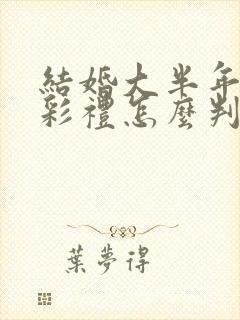 結婚大半年
彩禮怎麼判
葉夢得